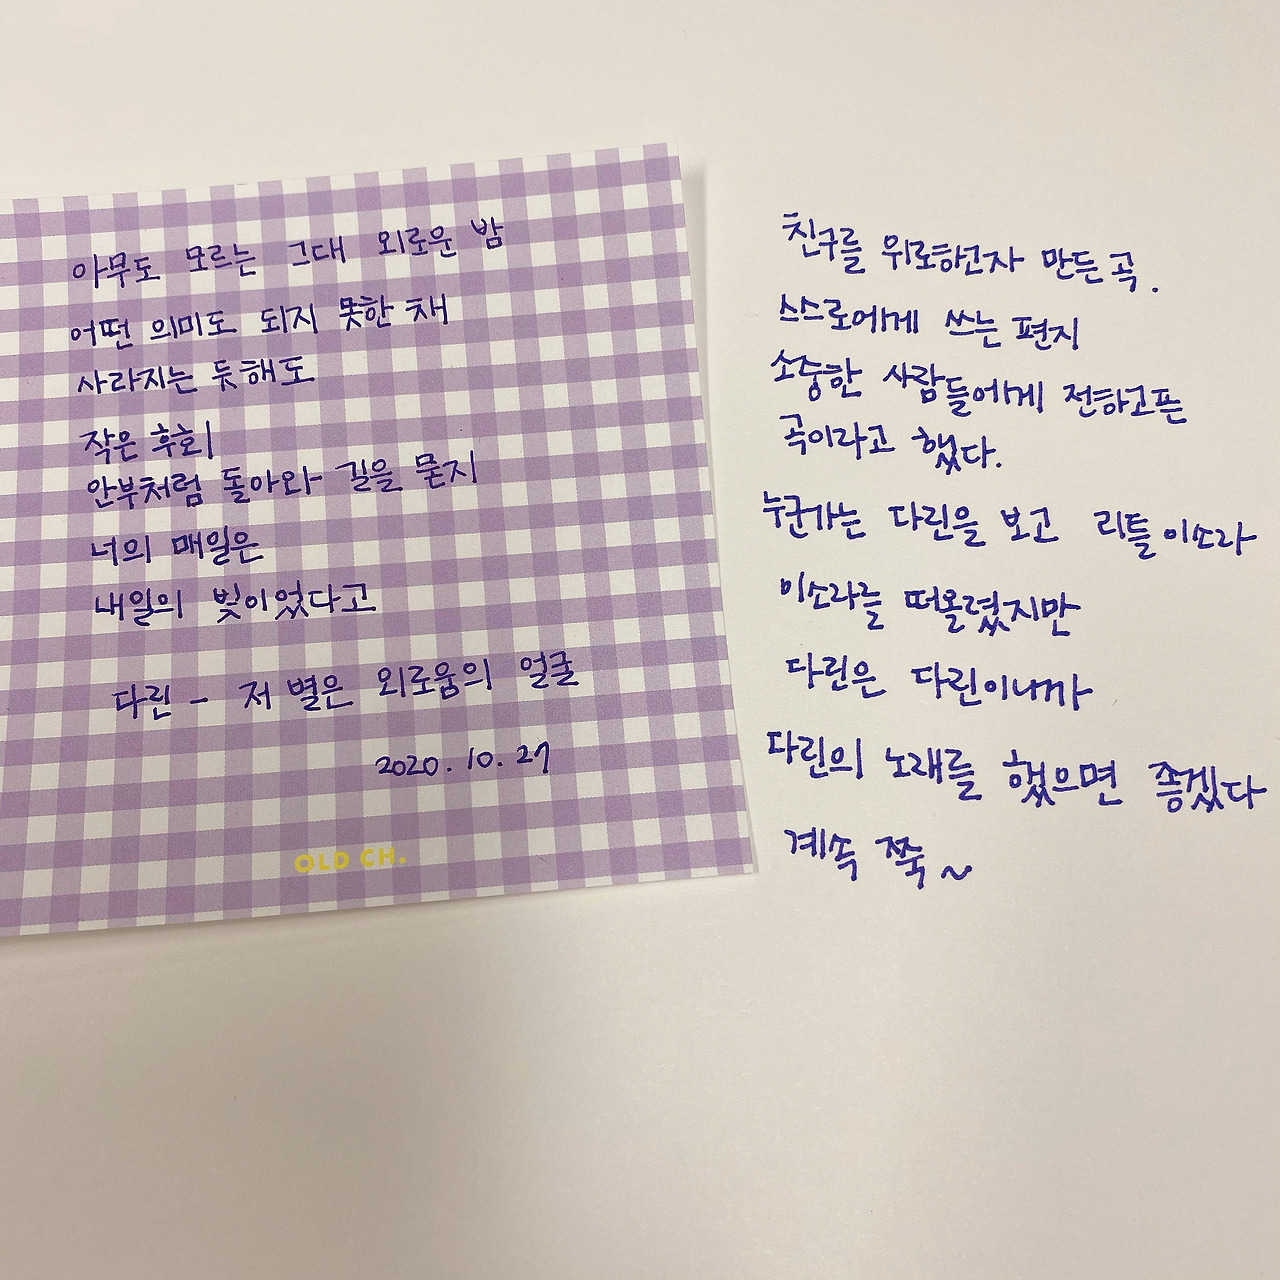 아무도 모르는 그대 외로운 밤
어떤 의미도 되지 못한 채
사라지는 듯해도
작은 후회
안부처럼 돌아와 길을 묻지
너의 매일은
내일의 빛이었다고
다린 - 저 별은 외로움의 얼굴
2020. 10. 27
OLD CH.
친구를 위로하고자 만든 곡.
스스로에게 쓰는 편지
소중한 사람들에게 전하고픈
곡이라고 했다.
누군가는 다린을 보고 리틀이소라
이소라를 떠올렸지만
다린은 다린이니까
다린의 노래를 했으면 좋겠다
계속 쭉~